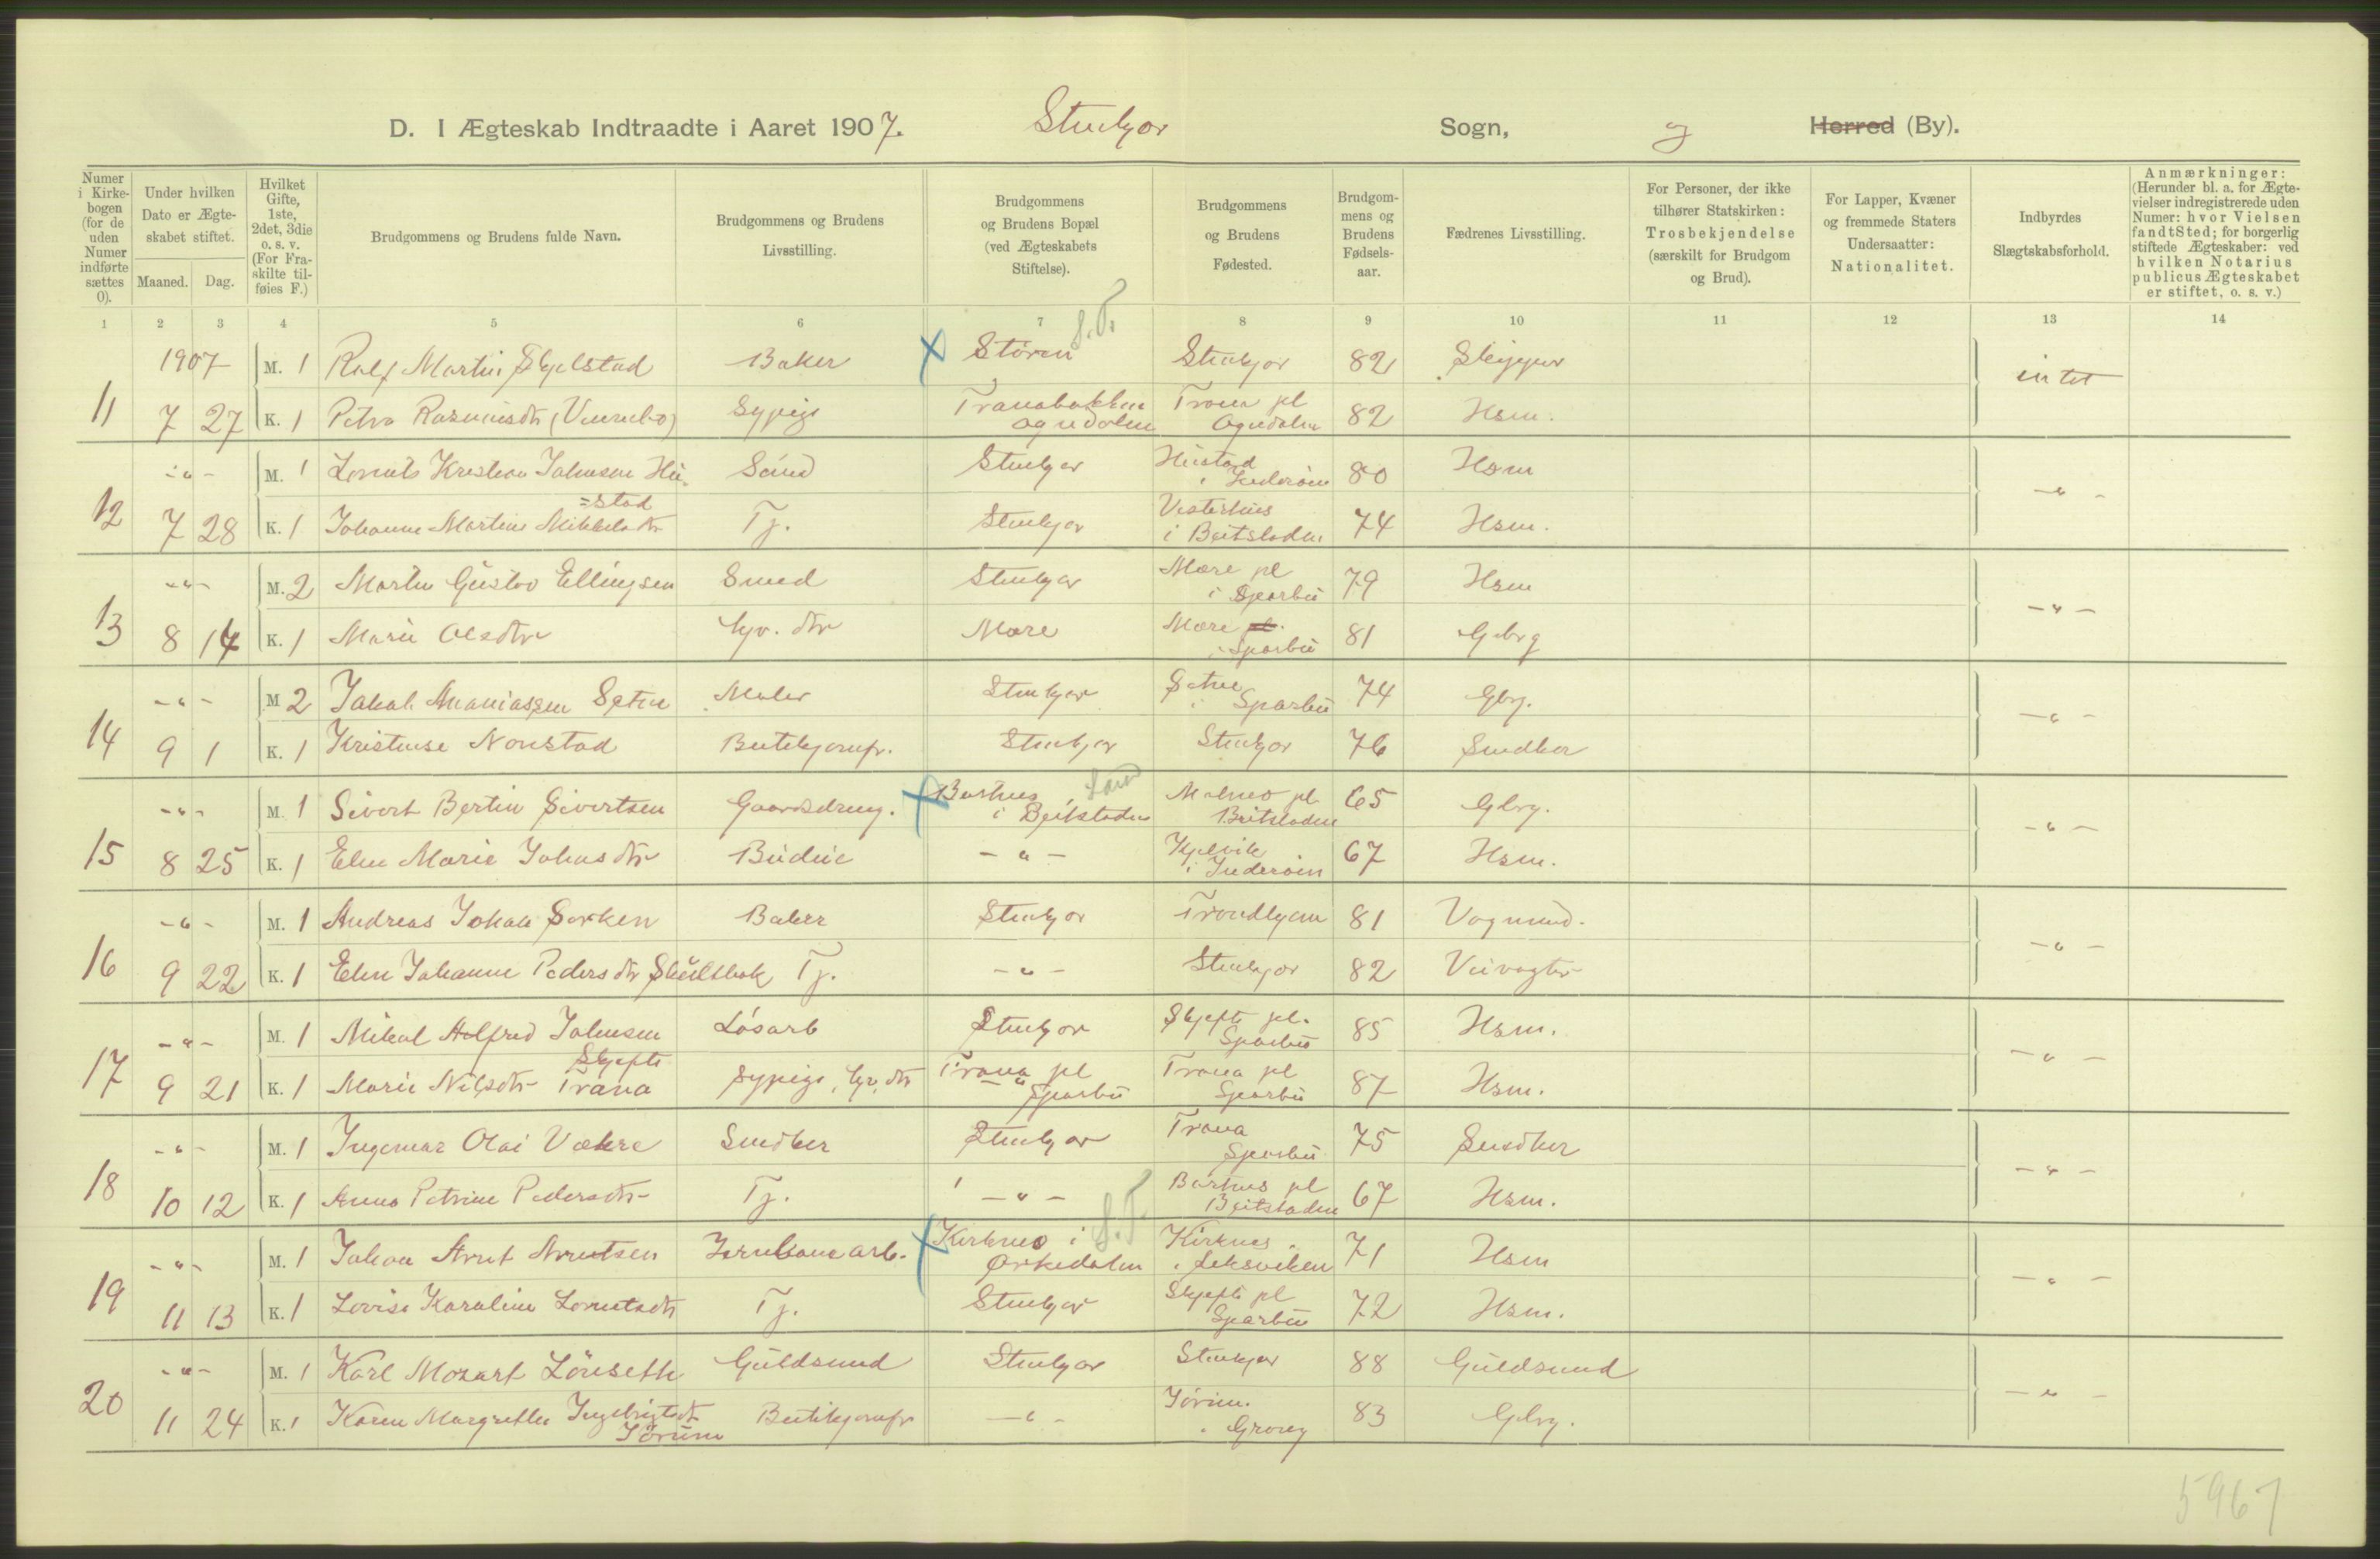 D. I Ægteskab Indtraadte i Aaret 1907. Stenkjær Sogn, og Herred (By).
Numer i Kirkebogen (for de uden Numer indførte sættes 0).
Under hvilken Dato er Ægteskabet stiftet.
Maaned. Dag.
Hvilket Gifte, 1ste, 2det, 3die o. s. v. (For Fraskilte tilføies F.)
Brudgommens og Brudens fulde Navn.
Brudgommens og Brudens Livsstilling.
Brudgommens og Brudens Bopæl (ved Ægteskabets Stiftelse).
Brudgommens og Brudens Fødested.
Brudgommens og Brudens Fødselsaar.
Fædrenes Livsstilling.
For Personer, der ikke tilhører Statskirken: Trosbekjendelse (særskilt for Brudgom og Brud).
For Lapper, Kvæner og fremmede Staters Undersaatter: Nationalitet.
Indbyrdes Slægtskabsforhold.
Anmærkninger: (Herunder bl. a. for Ægtevielser indregistrerede uden Numer: hvor Vielsen fandt Sted; for borgerlig stiftede Ægteskaber: ved hvilken Notarius publicus Ægteskabet er stiftet, o. s. v.)
1 2 3 4 5 6 7 8 9 10 11 12 13 14
1907 M. 1 Ralf Martin Skjelstad Baker Støren S.T. Stenkjær 82 Skipper intet
11 7 27 K. 1 Petra Rasmusdtr Sypige Tranabakken Ogndalen Trana pl Ogndalen 82 Hsm.
-"- M. 1 Lornts Kristian Johnsen Hustad Smed Stenkjær Hustad i Inderøen 80 Hsm -"-
12 7 28 K. 1 Johanne Martine Mikkelsdtr Tj. Stenkjær Vesterhus i Beitstaden 74 Hsm.
-"- M. 2 Martin Gustav Ellingsen Smed Stenkjær Mære pl i Sparbu 79 Hsm -"-
13 8 14 K. 1 Marie Olsdtr hjv. dtr Mære Mære pl. i Sparbu 81 Gbrg
-"- M 2 Jakob Ananiassen Setne Maler Stenkjær Setne i Sparbu 74 Gbrg. -"-
14 9 1 K. 1 Kristense Nonstad Butikjomfr. Stenkjær Stenkjær 76 Snedker
-"- M. 1 Sivert Bertin Sivertsen Gaardsdreng. Bartnes i Beitstaden Malmo pl Beitstaden 65 Gbrg. -"-
15 8 25 K. 1 Elen Marie Johnsdtr Budeie -"- Kjelvik i Inderøen 67 Hsm.
-"- M. 1 Andreas Johan Sorken Baker Stenkjær Trondhjem 81 Vognmd. -"-
16 9 22 K. 1 Elen Johanne Pedersdtr Skillbek Tj. -"- Stenkjær 82 Veivogter
-"- M. 1 Mikal Alfred Johnsen Skjefte Løsarb Stenkjær Skjefte pl. Sparbu 85 Hsm. -"-
17 9 21 K. 1 Marie Nilsdtr Trana Sypige, hjv. dtr Trana pl Sparbu Trana pl Sparbu 87 Hsm.
-"- M. 1 Ingemar Olai Vækre Snedker Stenkjær Trana Sparbu 75 Snedker -"-
18 10 12 K. 1 Anna Petrine Pedersdtr Tj. -"- Bartnes pl Beitstaden 67 Hsm.
-"- M. 1 Johan Arnt Arntsen Jernbanearb. Kirknes i Orkedalen S.T. Kirknes i Leksviken 71 Hsm -"-
19 11 13 K. 1 Lovise Karoline Lorntsdtr Tj. Stenkjær Skjefte pl Sparbu 72 Hsm.
-"- M. 1 Karl Mozart Lönseth Guldsmed Stenkjær Stenkjær 88 Guldsmed -"-
20 11 24 K. 1 Karen Margrethe Ingebrigtsdt Jörum Butikjomfr -"- Jörum. i Grong 83 Gbrg.
5967